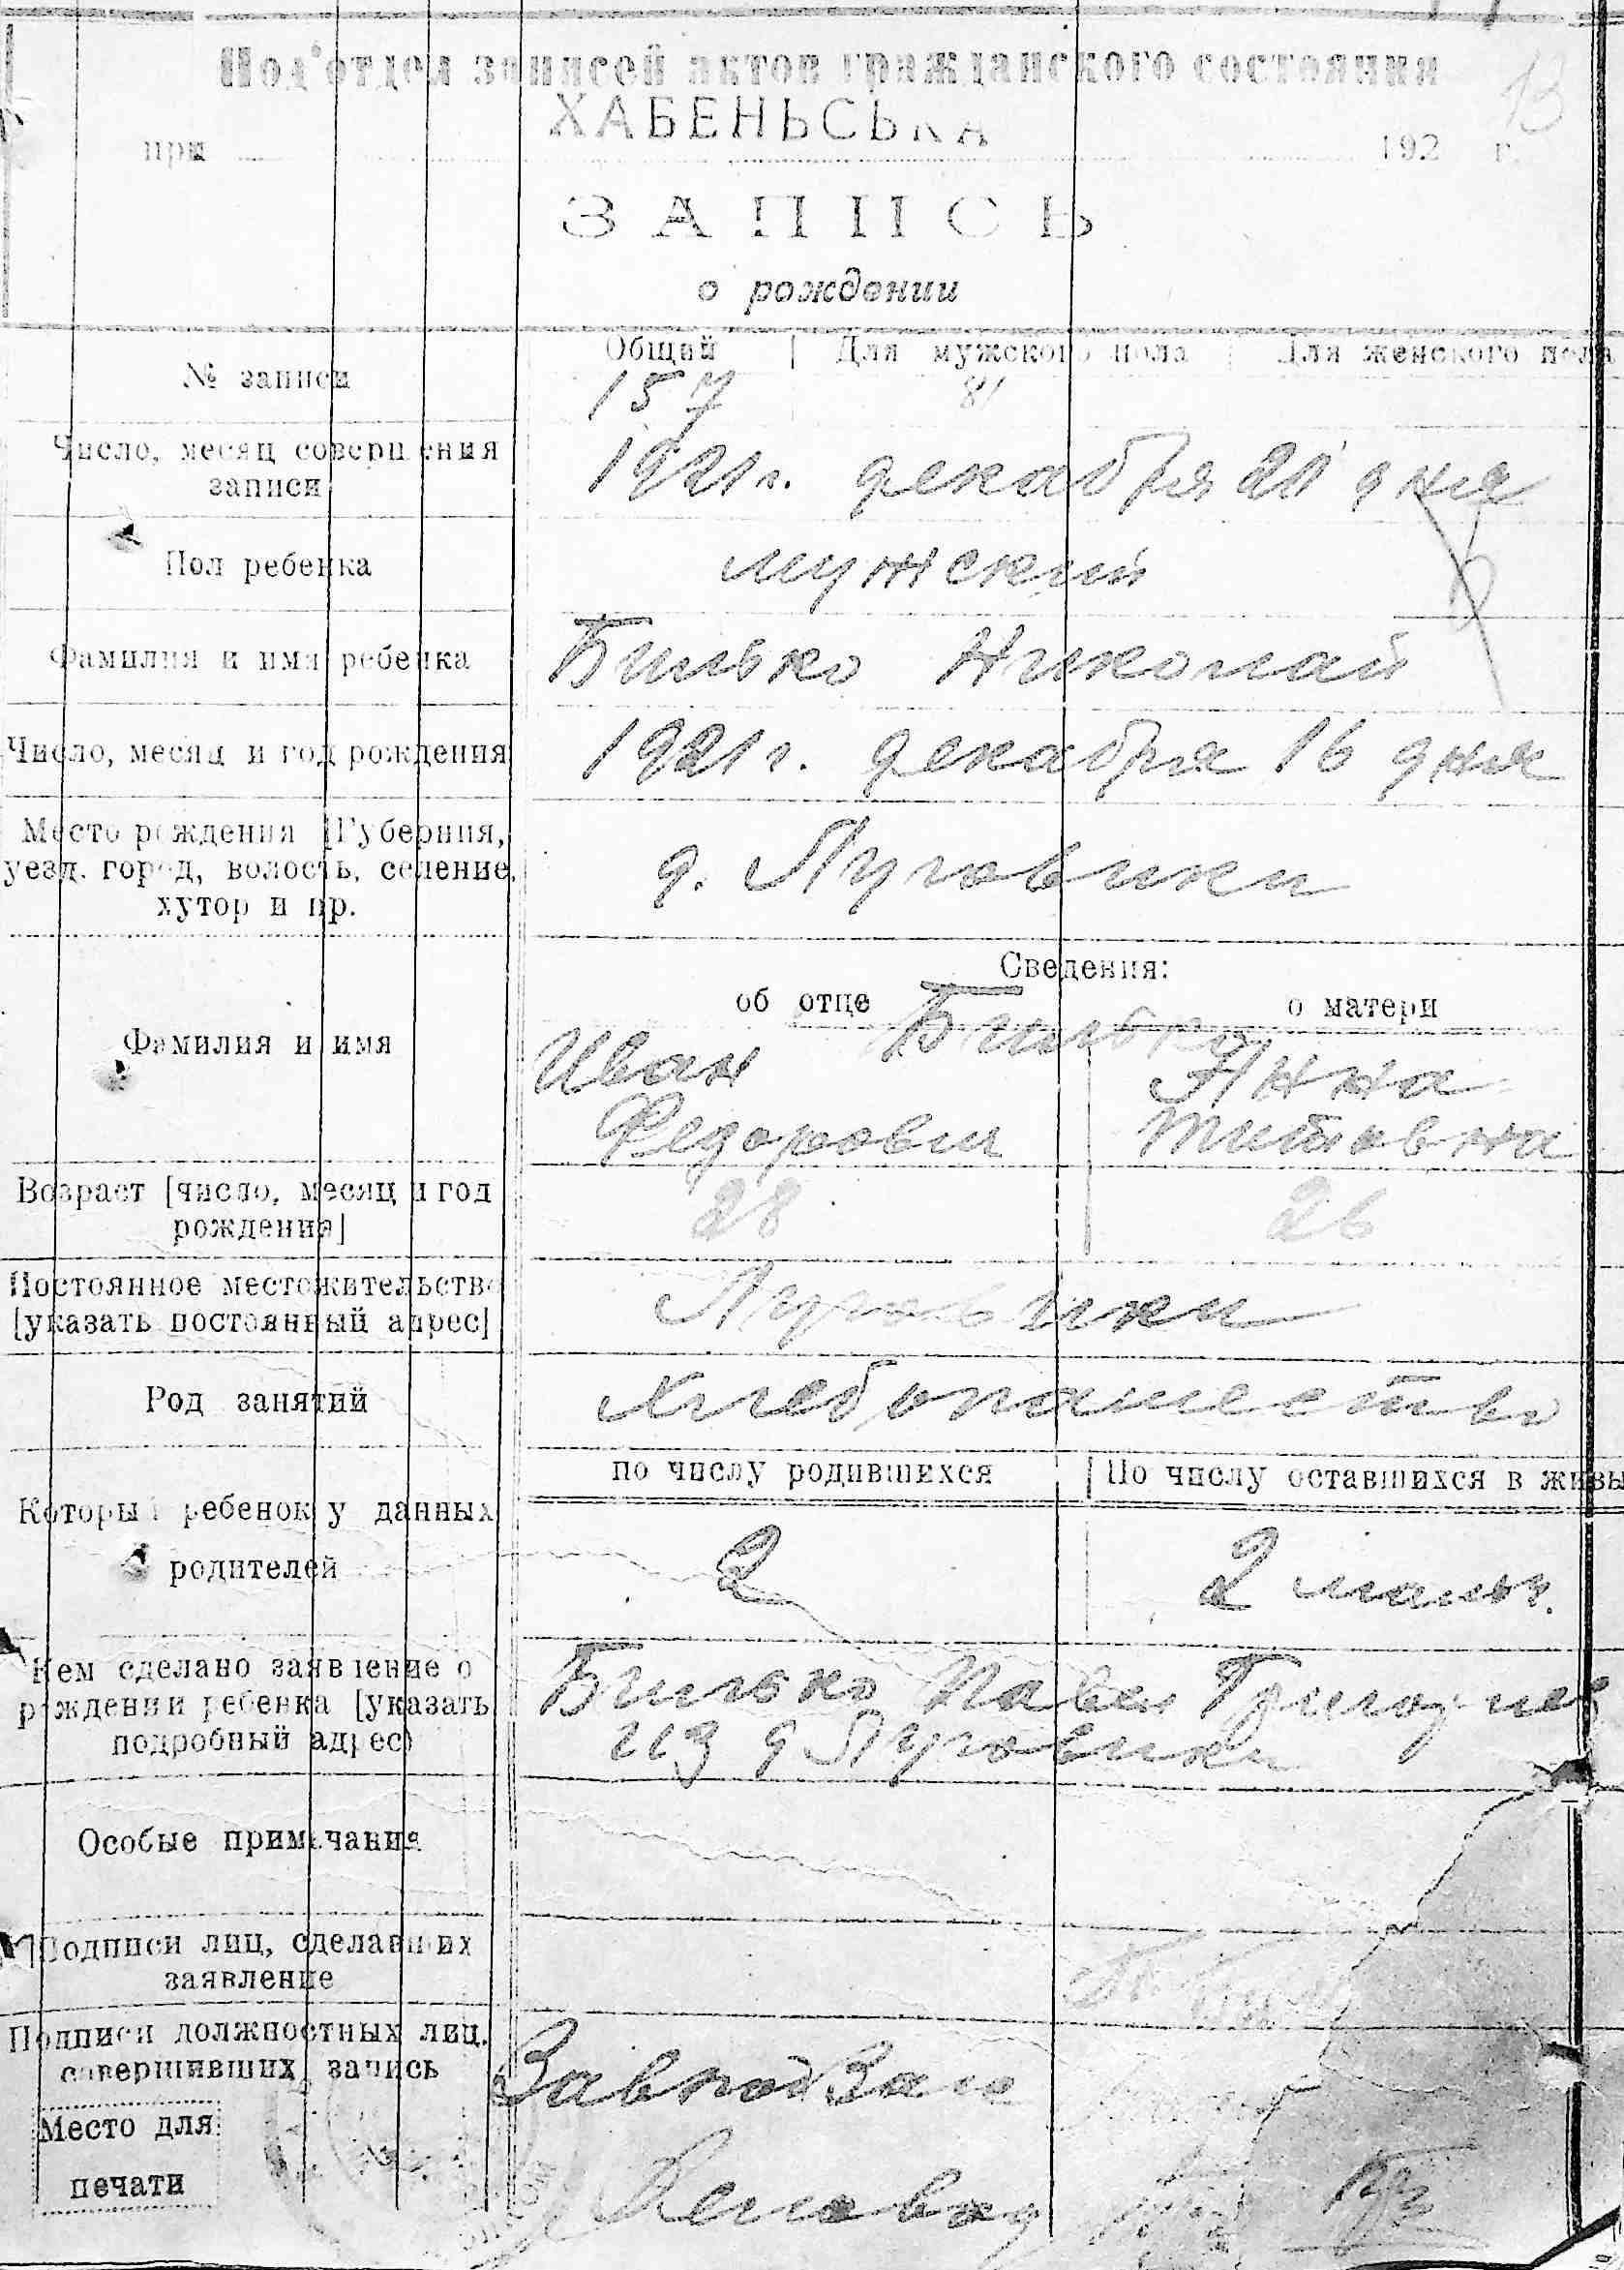 Под'отдел записей актов гражданского состояния
13
ХАБЕНЬСЬКА
при 192 г.
ЗАПИСЬ
о рождении
№ записи
Общий Для мужского пола Для женского пола
157 81
Число, месяц совершения записи
1921 г. декабря 21 дня
Пол ребенка
мужский
Фамилия и имя ребенка
Билько Николай
Число, месяц и год рождения
1921 г. декабря 16 дня
Место рождения [Губерния,
уезд, город, волость, селение,
хутор и пр.
д. Луговики
Сведения:
об отце о матери
Фамилия и имя
Билько
Иван Анна
Федорович Титовна
Возраст [число, месяц и год
рождения]
28 26
Постоянное местожительство
[указать постоянный адрес]
Луговики
Род занятий
Хлебопашество
по числу родившихся По числу оставшихся в живы
Который ребенок у данных
родителей
2 2 мальч.
Кем сделано заявление о
рождении ребенка [указать
подробный адрес)
Билько Павел
из д Луговики
Особые примечания
Подписи лиц, сделавших
заявление
Подписи должностных лиц,
совершивших запись
ЗавподЗаго
Место для
печати
Деловод